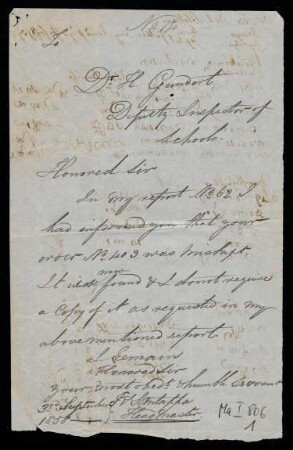 To
Dr. H. Gundert
Deputy Inspector of
Schools.
Honored Sir
In my report No 62 I
had informed you that your
order No 403 was misslipt.
It is now found & I do not require
a Copy of it as requested in my
above mentioned report.
I remain
Honored Sir
your most obedt & humble Servant
3rd September
1858
Head master
Ma I 806
1